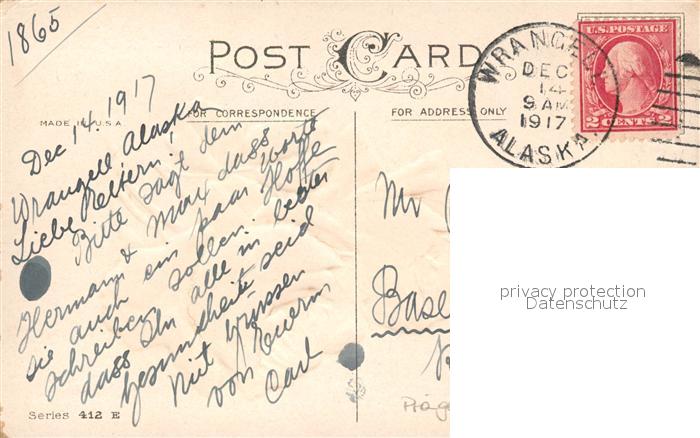 1865
POST CARD
WRANGELL
DEC
14
9 AM
1917
ALASKA
U.S. POSTAGE
2 CENTS 2
FOR CORRESPONDENCE
FOR ADDRESS ONLY
MADE IN U.S.A.
Dec 14. 1917
Wrangell, Alaska
Liebe Aeltern,
Bitte sagt dem
Hermann & Max dass
sie auch ein paar Worte
schreiben sollen. Hoffe
dass Ihr alle in bester
Gesundheit seid
Mit Grüssen
von Euerm
Carl
Mr
Base
privacy protection
Datenschutz
Präge
Series 412 E